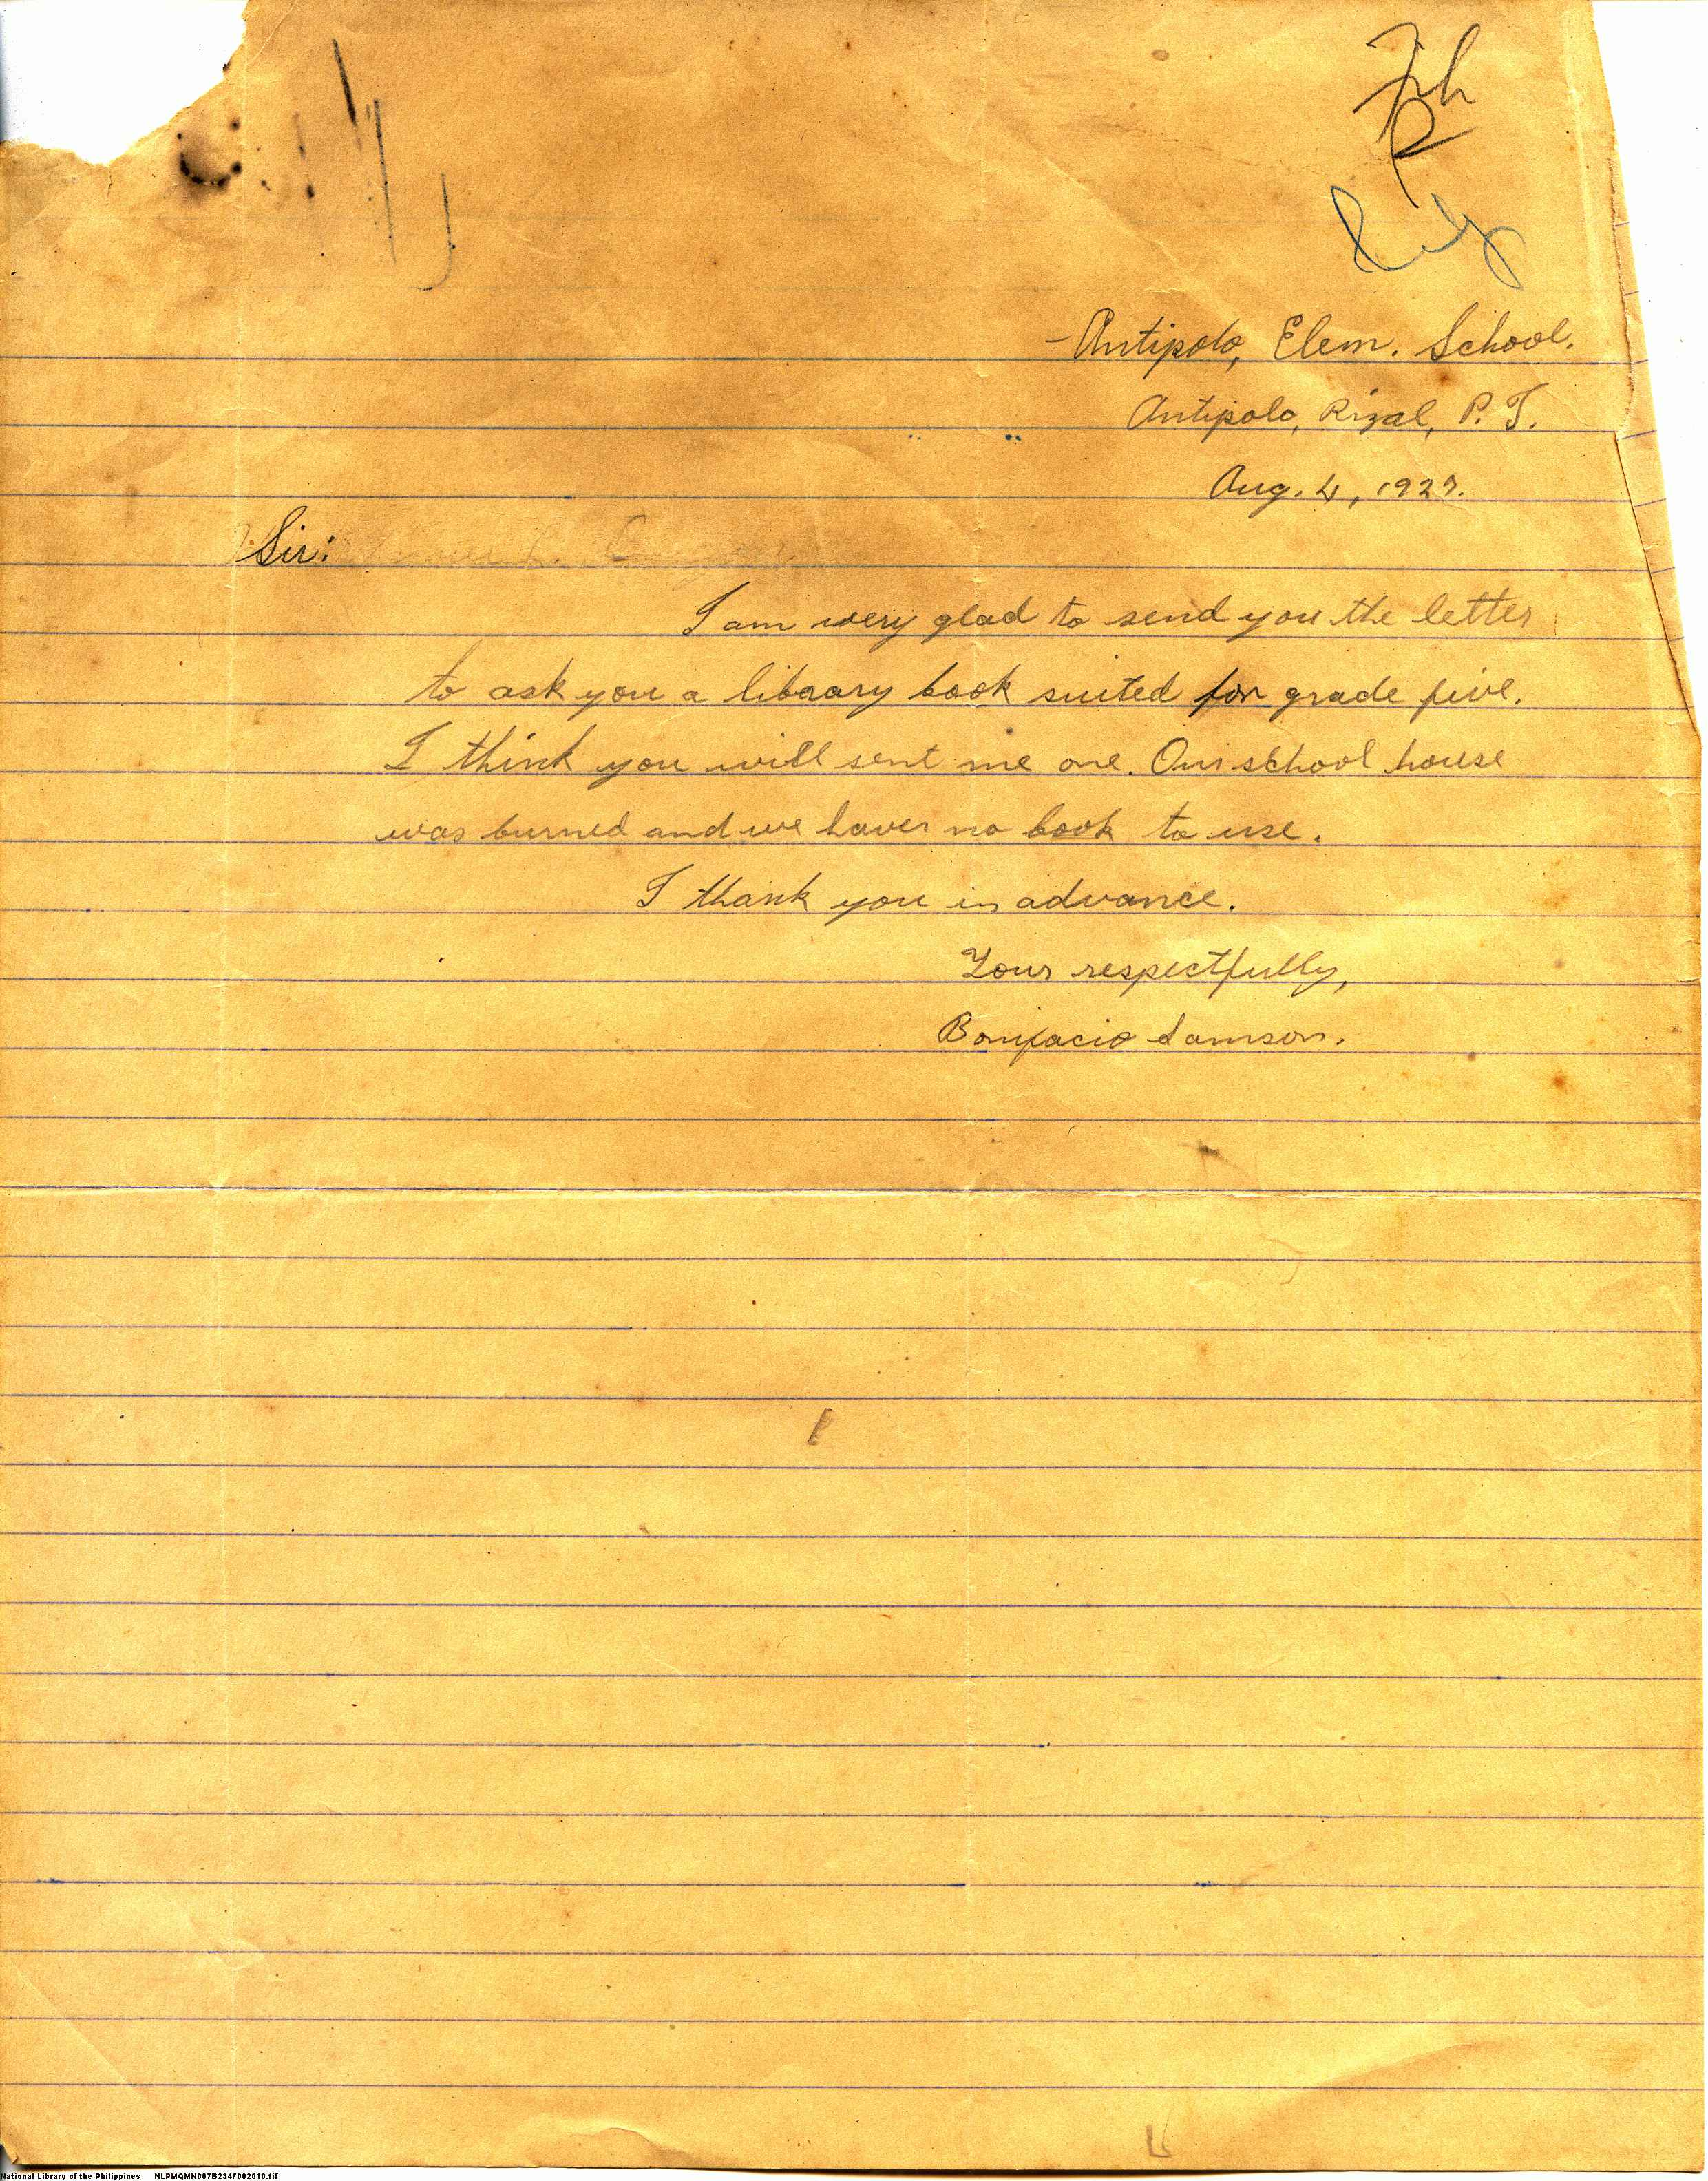 Antipolo, Elem. School.
Antipolo, Rizal, P. I.
Aug. 4, 1927.
Sir:
I am very glad to send you the letter
to ask you a library book suited for grade five.
I think you will sent me one. Our school house
was burned and we have no book to use.
I thank you in advance.
Your respectfully,
Bonifacio Samson.
National Library of the Philippines NLPMQMN007B234F002010.tif